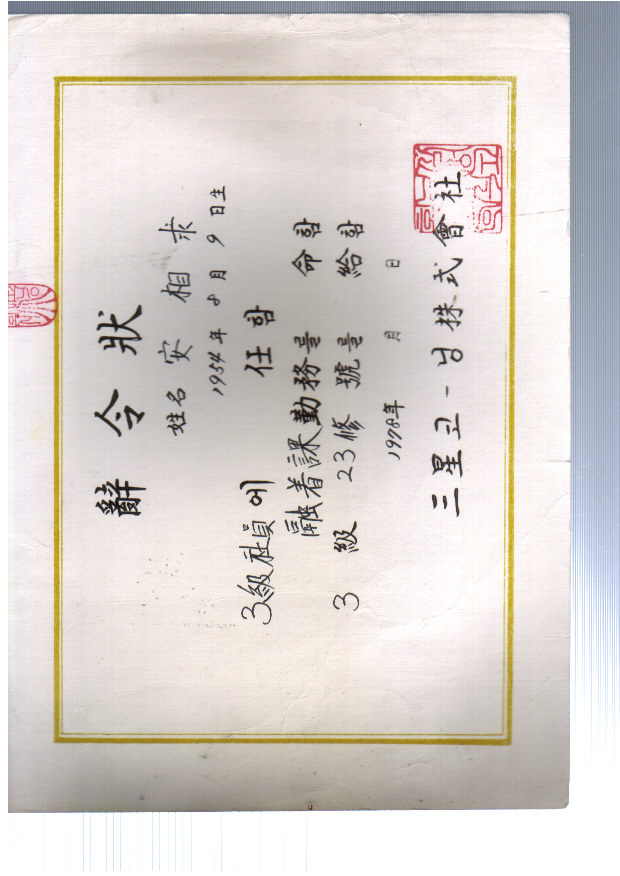 辭令狀
姓名 安相求
1954年 8月 9日生
3級社員에 任함
融着課勤務를 命함
3級 23修 號를 給함
1978年 月 日
三星코-닝株式會社